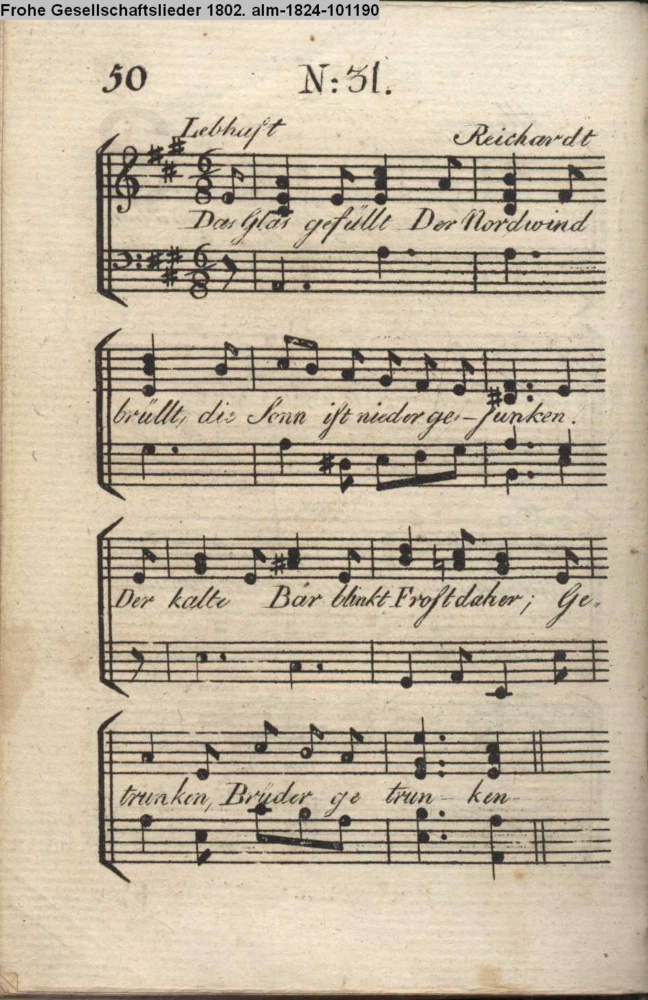 Frohe Gesellschaftslieder 1802. alm-1824-101190
50 N: 31.
Lebhaft Reichardt
Das Glas gefüllt Der Nordwind
brüllt, die Sonn ist nieder ge-sunken.
Der kalte Bär blinkt Frost daher; Ge-
trunken, Brüder ge trun- ken